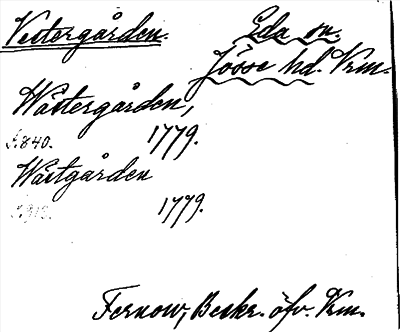 Vestergården. Eda sn.
Jösse hd. Vrm.
Wästergården,
s. 840. 1779.
Wästgården
1779.
Fernow, Beskr. öfv. Vrm.